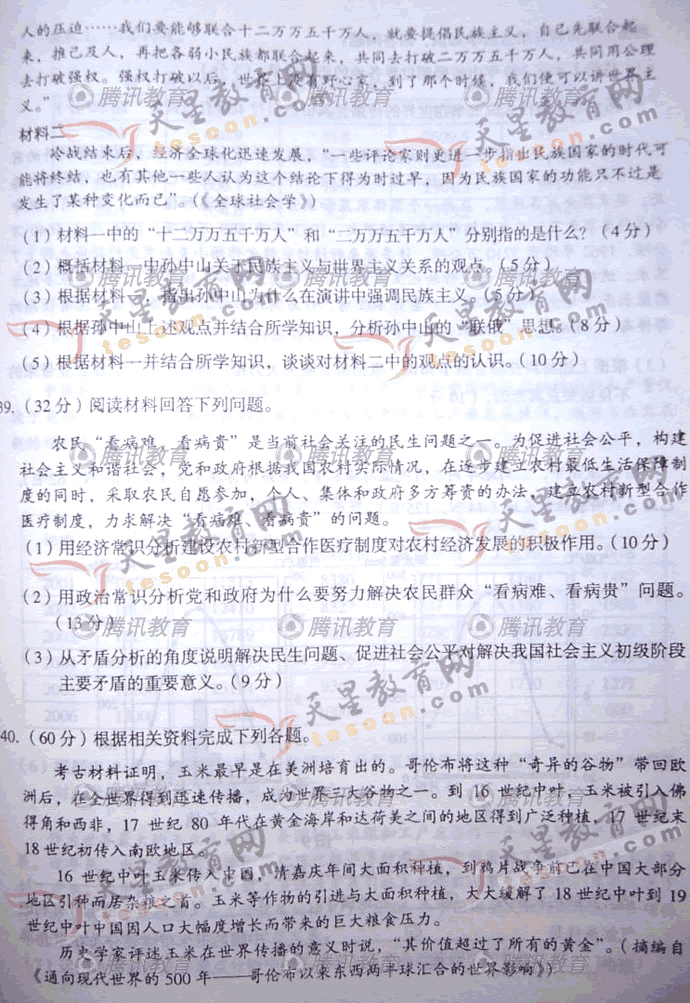 人的压迫……我们要能够联合十二万万五千万人，就要提倡民族主义，自己先联合起
来，推己及人，再把各弱小民族都联合起来，共同去打破二万万五千万人，共同用公理
去打破强权。强权打破以后，世界上没有野心家，到了那个时候，我们便可以讲世界主
义。”
材料二
冷战结束后，经济全球化迅速发展，“一些评论家则更进一步指出民族国家的时代可
能将终结，也有其他一些人认为这个结论下得为时过早，因为民族国家的功能只不过是
发生了某种变化而已”。（《全球社会学》）
（1）材料一中的“十二万万五千万人”和“二万万五千万人”分别指的是什么？（4分）
（2）概括材料一中孙中山关于民族主义与世界主义关系的观点。（5分）
（3）根据材料一，指出孙中山为什么在演讲中强调民族主义。（5分）
（4）根据孙中山上述观点并结合所学知识，分析孙中山的“联俄”思想。（8分）
（5）根据材料一并结合所学知识，谈谈对材料二中的观点的认识。（10分）
39.（32分）阅读材料回答下列问题。
农民“看病难、看病贵”是当前社会关注的民生问题之一。为促进社会公平，构建
社会主义和谐社会，党和政府根据我国农村实际情况，在逐步建立农村最低生活保障制
度的同时，采取农民自愿参加，个人、集体和政府多方筹资的办法，建立农村新型合作
医疗制度，力求解决“看病难、看病贵”的问题。
（1）用经济常识分析建设农村新型合作医疗制度对农村经济发展的积极作用。（10分）
（2）用政治常识分析党和政府为什么要努力解决农民群众“看病难、看病贵”问题。
（13分）
（3）从矛盾分析的角度说明解决民生问题、促进社会公平对解决我国社会主义初级阶段
主要矛盾的重要意义。（9分）
40.（60分）根据相关资料完成下列各题。
考古材料证明，玉米最早是在美洲培育出的。哥伦布将这种“奇异的谷物”带回欧
洲后，在全世界得到迅速传播，成为世界三大谷物之一。到 16 世纪中叶，玉米被引入佛
得角和西非，17 世纪 80 年代在黄金海岸和达荷美之间的地区得到广泛种植，17 世纪末
18世纪初传入南欧地区。
16 世纪中叶玉米传入中国，清嘉庆年间大面积种植，到鸦片战争前已在中国大部分
地区引种而居杂粮之首。玉米等作物的引进与大面积种植，大大缓解了 18 世纪中叶到 19
世纪中叶中国因人口大幅度增长而带来的巨大粮食压力。
历史学家评述玉米在世界传播的意义时说，“其价值超过了所有的黄金”。（摘编自
《通向现代世界的 500 年——哥伦布以来东西两半球汇合的世界影响》）
腾讯教育
天星教育网
tesoon.com